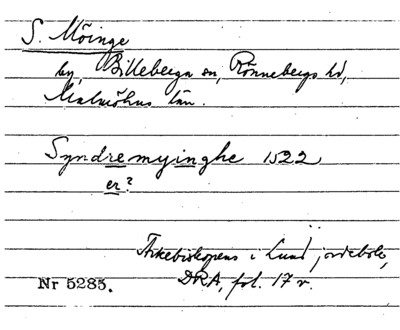 S. Möinge
by, Billeberga sn, Rönnebergs hd,
Malmöhus län.
Syndremyinghe 1522
er?
Ärkebiskopens i Lund jordebok,
Nr 5285. DRA, fol. 17 v.